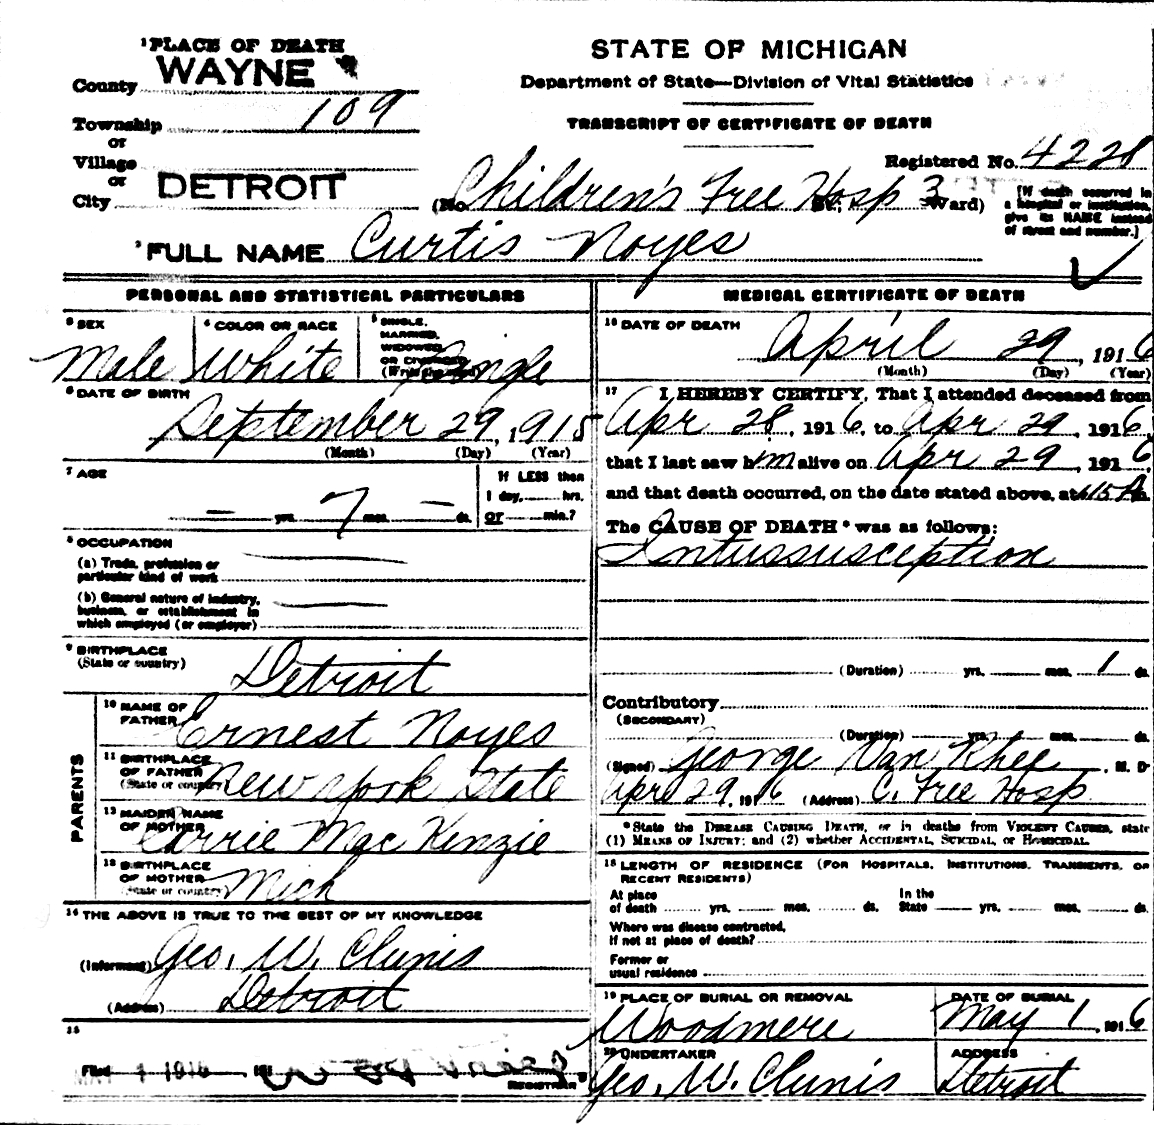 ¹PLACE OF DEATH
County WAYNE
Township 109
or
Village
or
City DETROIT
STATE OF MICHIGAN
Department of State—Division of Vital Statistics
TRANSCRIPT OF CERTIFICATE OF DEATH
Registered No. 4228
(No. Children's Free Hosp St., 3 Ward)
[If death occurred in
a hospital or institution,
give its NAME instead
of street and number.]
²FULL NAME Curtis Noyes
PERSONAL AND STATISTICAL PARTICULARS
³ SEX
Male
⁴ COLOR OR RACE
White
⁵ SINGLE,
MARRIED,
WIDOWED,
OR DIVORCED
(Write the word)
Single
⁶ DATE OF BIRTH
September 29, 1915
(Month) (Day) (Year)
⁷ AGE
— yrs. 7 mos. — ds.
If LESS than
1 day, hrs.
OR min.?
⁸ OCCUPATION
(a) Trade, profession or
particular kind of work
(b) General nature of industry,
business, or establishment in
which employed (or employer)
⁹ BIRTHPLACE
(State or country)
Detroit
PARENTS
¹⁰ NAME OF
FATHER Ernest Noyes
¹¹ BIRTHPLACE
OF FATHER
(State or country) New York State
¹² MAIDEN NAME
OF MOTHER Carrie MacKenzie
¹³ BIRTHPLACE
OF MOTHER
(State or country) Mich
¹⁴ THE ABOVE IS TRUE TO THE BEST OF MY KNOWLEDGE
(Informant) Geo. W. Clunis
(Address) Detroit
¹⁵
Filed 191
REGISTRAR
MEDICAL CERTIFICATE OF DEATH
¹⁶ DATE OF DEATH
April 29, 1916
(Month) (Day) (Year)
¹⁷ I HEREBY CERTIFY, That I attended deceased from
Apr 28, 1916, to Apr 29, 1916,
that I last saw him alive on Apr 29, 1916,
and that death occurred, on the date stated above, at 615 A m.
The CAUSE OF DEATH * was as follows:
Intussusception
(Duration) yrs. mos. 1 ds.
Contributory
(SECONDARY)
(Duration) yrs. mos. ds.
(Signed) George Van Rhee, M. D
Apr 29, 1916 (Address) C. Free Hosp
*State the DISEASE CAUSING DEATH, or in deaths from VIOLENT CAUSES, state
(1) MEANS OF INJURY; and (2) whether ACCIDENTAL, SUICIDAL, or HOMICIDAL.
¹⁸ LENGTH OF RESIDENCE (FOR HOSPITALS, INSTITUTIONS, TRANSIENTS, OR
RECENT RESIDENTS)
At place
of death yrs. mos. ds.
In the
State yrs. mos. ds.
Where was disease contracted,
if not at place of death?
Former or
usual residence
¹⁹ PLACE OF BURIAL OR REMOVAL
Woodmere
DATE OF BURIAL
May 1, 1916
²⁰ UNDERTAKER
Geo. W. Clunis
ADDRESS
Detroit